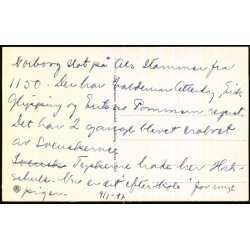 Norborg slot på Als Stammer fra
1150. Der har Valdemar Atterdag, Erik
Glipping og Erik af Pommern regeret.
Det har 2 gange blevet erobret
av Svenskerne.
Svensk Tyskerne hade her Hoch-
schule. Nu er det "efterskole" for unge
piger.